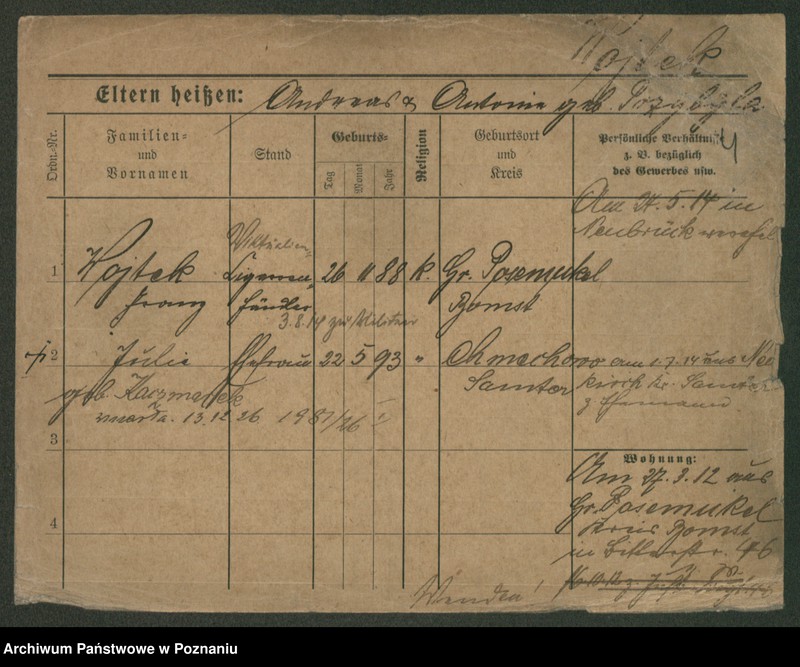 Wojtek
Eltern heißen: Andreas & Antonie geb. Przybyla
Ordn.-Nr.
Familien- und Vornamen
Stand
Geburts-
Tag
Monat
Jahr
Religion
Geburtsort und Kreis
Persönliche Verhältnisse z. B. bezüglich des Gewerbes usw.
4
Am 24.5.14 in
Neubrück
1
Wojtek
Franz
Viktualien-
Zigarren-
händler
26 11 88 k. Gr. Posemukel
Bomst
3.8.14 zu Militär
2
Julie Ehefrau 22 5 93 " Chmechowo
Samter
geb. Kaczmarek
13.12.26 1981/26
am 1.7.14 aus
Kr. Samter
z Ehemann
3
Wohnung:
Am 27.3.12 aus
Gr. Posemukel
Kreis Bomst
4
in 46
Wenden!
Archiwum Państwowe w Poznaniu